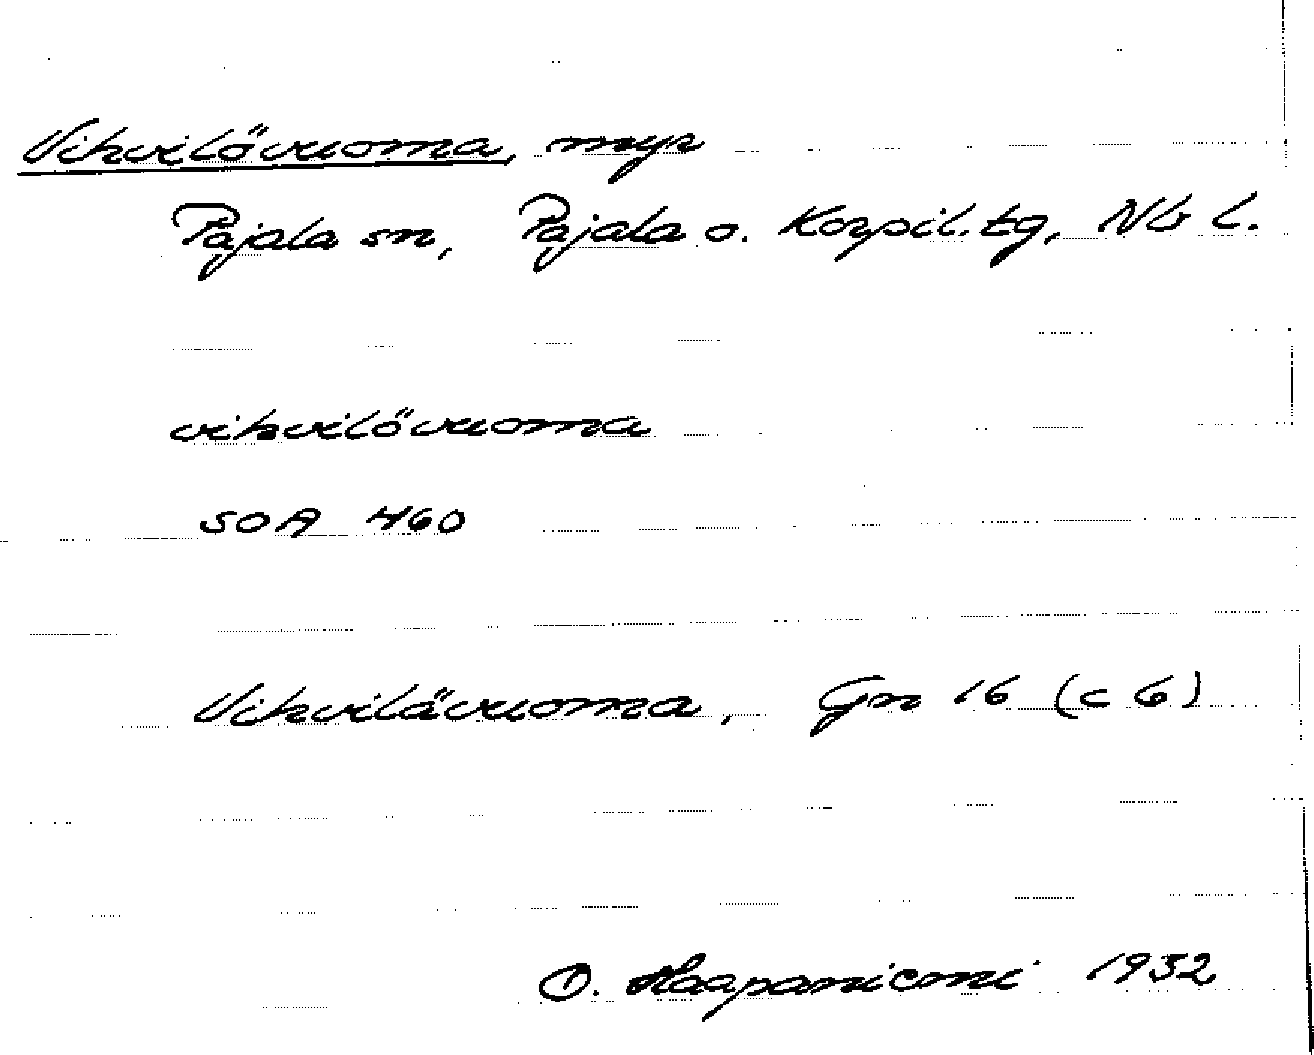 Vihvilövuoma, myr
Pajala sn, Pajala o. Korpil. tg, Nb L.
vihvilövuoma
SOA 460
Vihvilävuoma, Gn 16 (c 6)
O. Haapaniemi 1932